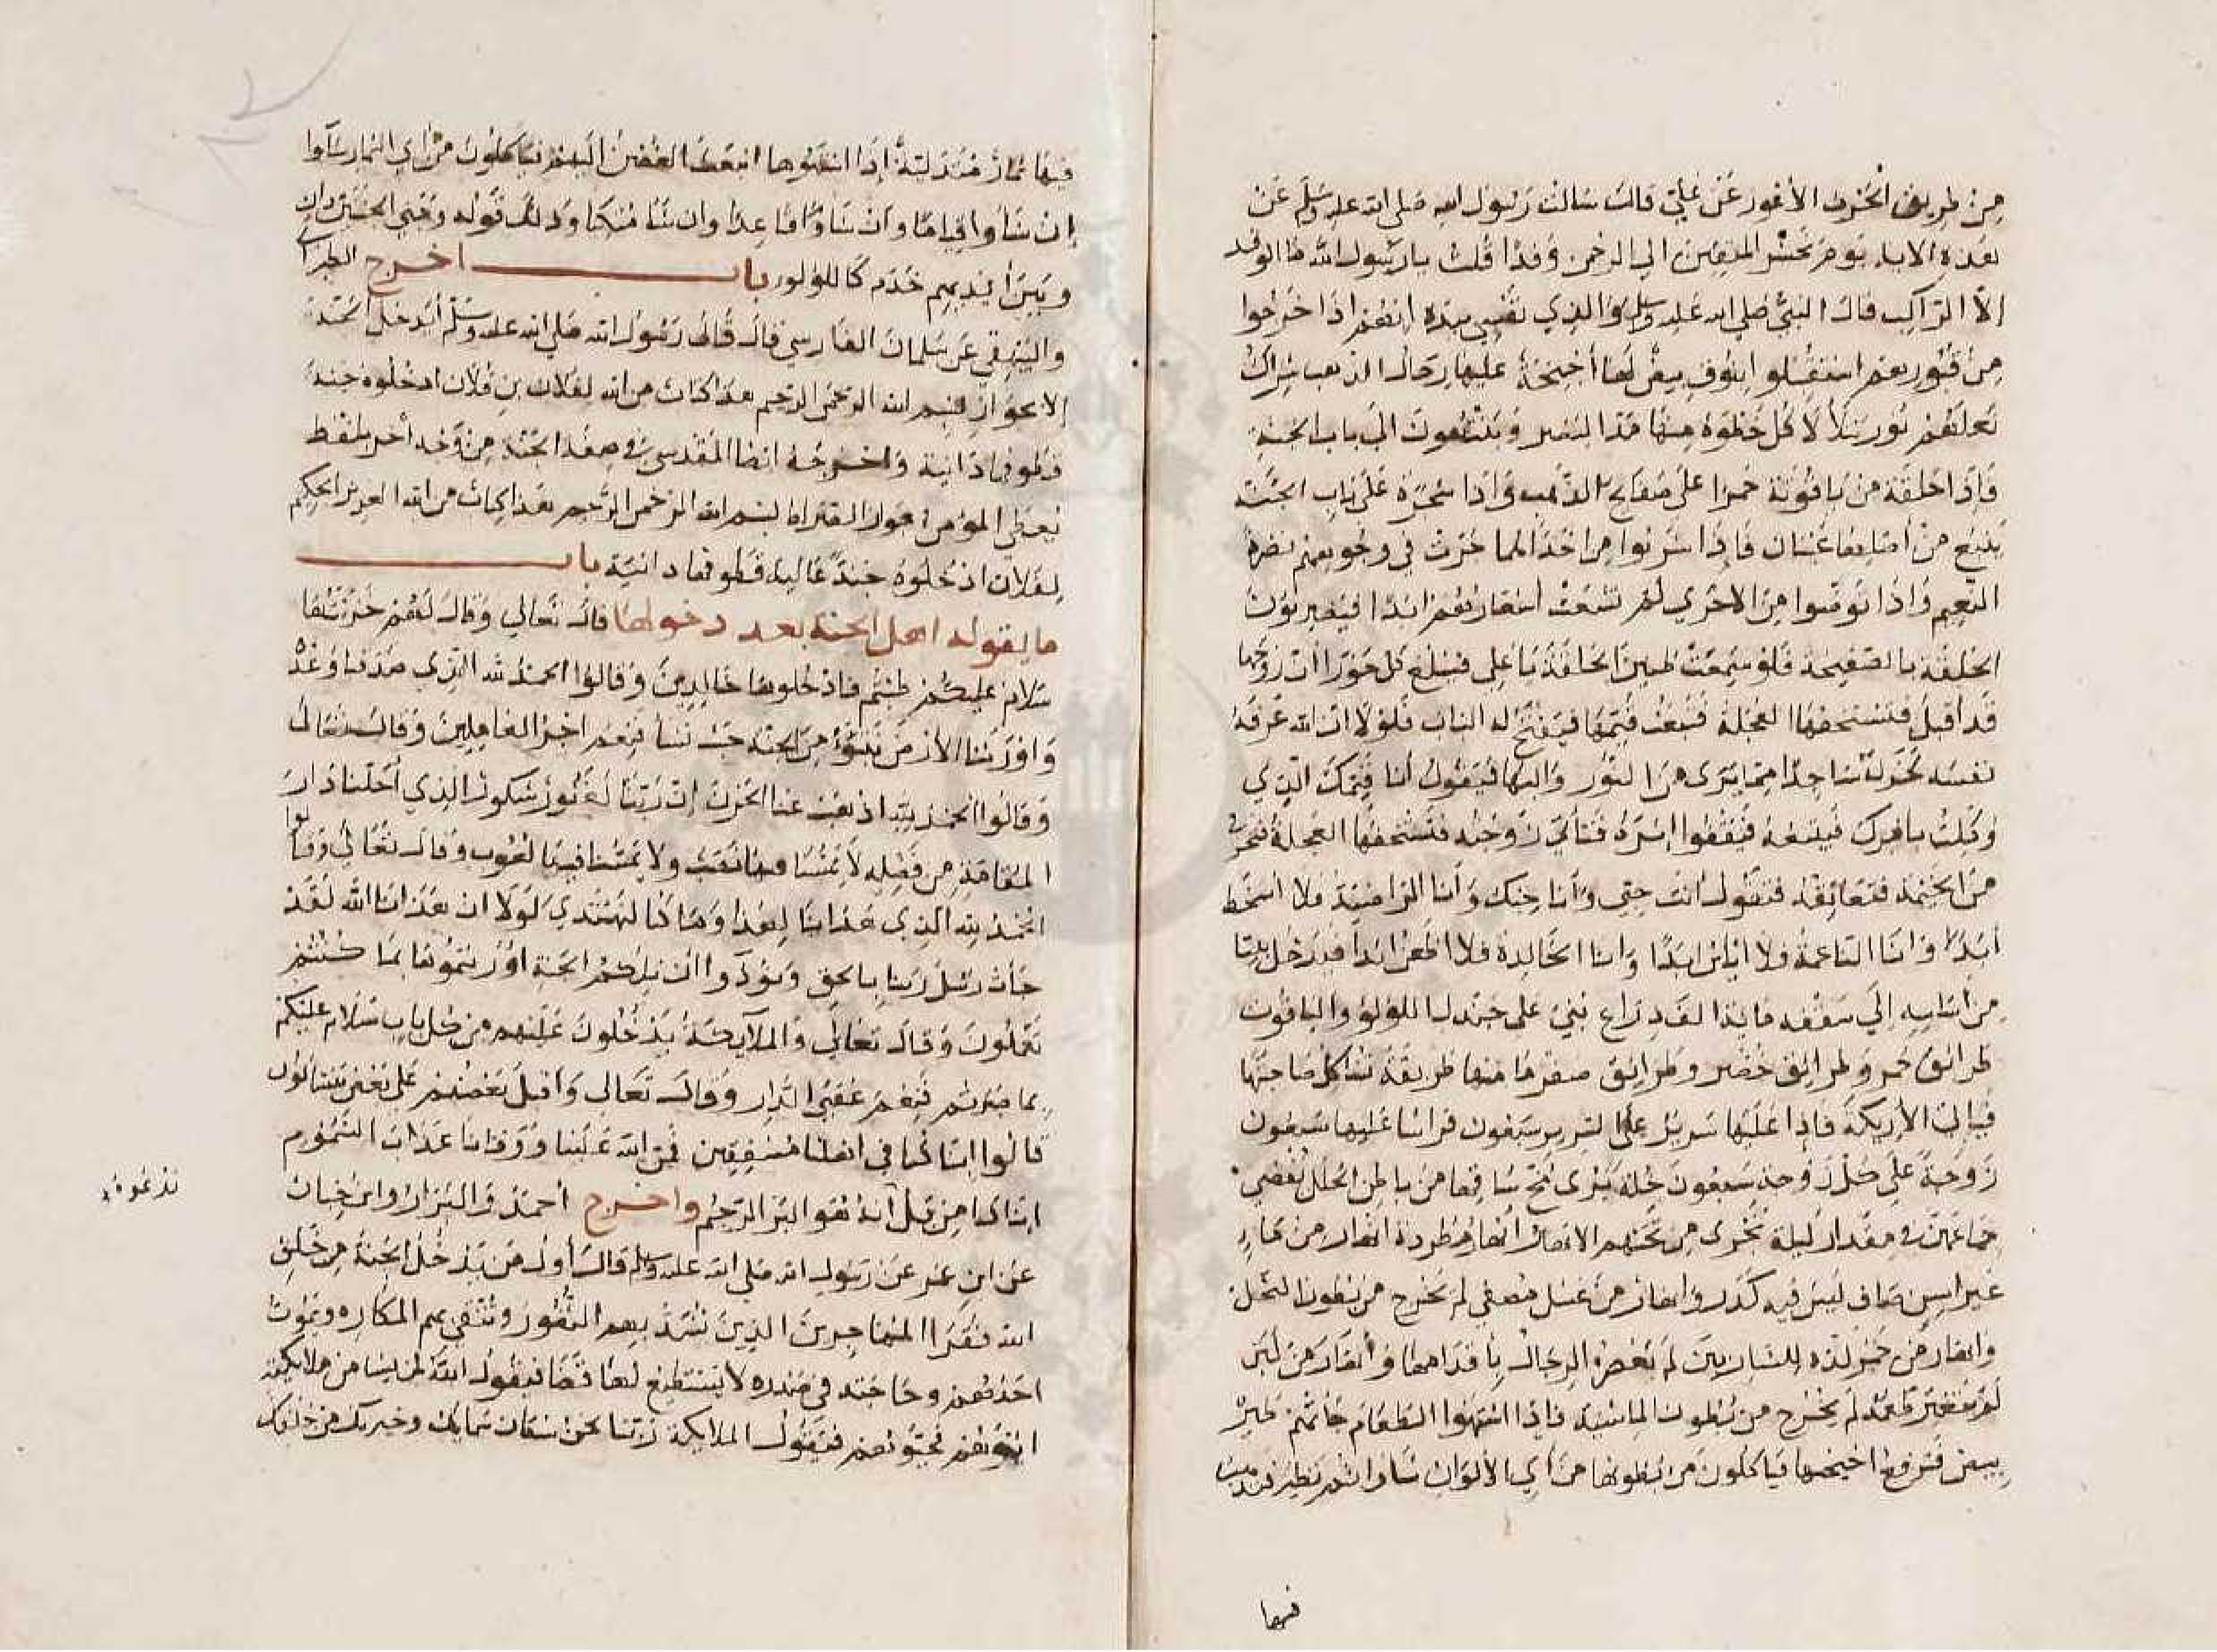 من طريق الحرث الأعور عن علي قال سالت رسول الله صلى الله عليه وسلم عن
هذه الاية يوم نحشر المتقين الى الرحمن وفدا قلت يا رسول الله ما الوفد
إلا الراكب قال النبي صلى الله عليه وسلم والذي نفسي بيده انهم اذا خرجوا
من قبورهم استقبلوا بنوق بيض لها أجنحة عليها رحال الذهب شراك
نعالهم نور يتلألأ كل خطوة منها مد البصر وينتهون الى باب الجنة
فإذا حلقة من ياقوتة حمرا على صفايح الذهب وإذا شجرة على باب الجنة
ينبع من أصلها عينان فإذا شربوا من احداهما جرت في وجوههم نضرة
النعيم وإذا توضوا من الاخرى لم تشعث أشعارهم ابدا فيضربون
الحلقة بالصفيحة فلو سمعت طنين الحلقة يا علي فيبلغ كل حورا أن زوجها
قد أقبل فتستخفها العجلة فتبعث قيمها فيفتح له الباب فلولا ان الله عرفه
نفسه لخر له ساجدا مما يرى من النور والبها فيقول أنا قيمك الذي
وكلت بامرك فيتبعه فيقفوا إثره فتأتي زوجته فتستخفها العجلة فتخرج
من الخيمة فتعانقه فتقول أنت حبي وأنا حبك وأنا الراضية فلا اسخط
أبدا وانا الناعمة فلا ابأس ابدا وانا الخالدة فلا اظعن ابدا فيدخل بيتا
من أساسه إلى سقفه ماية الف ذراع بني على جندل اللولو والياقوت
طرائق حمر وطرائق خضر وطرائق صفر ما منها طريقة تشاكل صاحبتها
فيأتي الأريكة فإذا عليها سرير على السرير سبعون فراشا عليها سبعون
زوجة على كل زوجة سبعون حلة يرى مخ ساقها من باطن الحلل يقضي
جماعهن في مقدار ليلة تجري من تحتهم الانهار أنهار مطردة انهار من ماء
غير اسن صاف ليس فيه كدر وانهار من عسل مصفى لم يخرج من بطون النحل
وانهار من خمر لذة للشاربين لم تعصره الرجال بأقدامها وأنهار من لبن
لم يتغير طعمه لم يخرج من بطون الماشية فإذا اشتهوا الطعام جاءتهم طير
بيض فترفع اجنحتها فياكلون من بطونها من أي الألوان شاوا ثم تطير فتذهب
فيها
فيها ثمار متدلية إذا اشتهوها انبعث الغصن اليهم فياكلون من أي الثمار شاوا
ان شاوا قياما وان شاوا قاعدا وان شا متكا وذلك قوله وجنى الجنتين دان
وبين أيديهم خدم كاللولو باب اخرج الطبراني
والبيهقي عن سلمان الفارسي قال قال رسول الله صلى الله عليه وسلم لا يدخل الجنة
إلا بجواز بسم الله الرحمن الرحيم هذا كتاب من الله لفلان بن فلان ادخلوه جنة
قطوفها دانية واخرجه ايضا المقدسي في صفة الجنة من وجه أخر بلفظ
يعطى المؤمن جواز الصراط بسم الله الرحمن الرحيم هذا كتاب من الله العزيز الحكيم
لفلان ادخلوه جنة عالية قطوفها دانية باب
ما يقوله اهل الجنة بعد دخولها قال تعالى وقال لهم خزنتها
سلام عليكم طبتم فادخلوها خالدين وقالوا الحمد لله الذي صدقنا وعده
وأورثنا الأرض نتبوأ من الجنة حيث نشأ فنعم اجر العاملين وقال تعالى
وقالوا الحمد لله اذهب عنا الحزن إن ربنا لغفور شكور الذي أحلنا دار
المقامة من فضله لا يمسنا فيها نصب ولا يمسنا فيها لغوب وقال تعالى وقالوا
الحمد لله الذي هدانا لهذا وما كنا لنهتدي لولا ان هدانا الله لقد
جأت رسل ربنا بالحق ونودوا أن تلكم الجنة اورثتموها بما كنتم
تعملون وقال تعالى والملآيكة يدخلون عليهم من كل باب سلام عليكم
بما صبرتم فنعم عقبى الدار وقال تعالى وأقبل بعضهم على بعض يتسائلون
قالوا انا كنا في اهلنا مشفقين فمن الله علينا ووقانا عذاب السموم
انا كنا من قبل ندعوه انه هو البر الرحيم واخرج أحمد والبزار وابن حبان
عن ابن عمر عن رسول الله صلى الله عليه وسلم قال أول من يدخل الجنة من خلق
الله فقرا المهاجرين الذين تسد بهم الثغور وتتقى بهم المكاره ويموت
احدهم وحاجته في صدره لا يستطيع لها قضا فيقول الله لمن يشا من ملائكته
ايتوهم فحيوهم فتقول الملايكة ربنا نحن سكان سمايك وخيرتك من خلقك